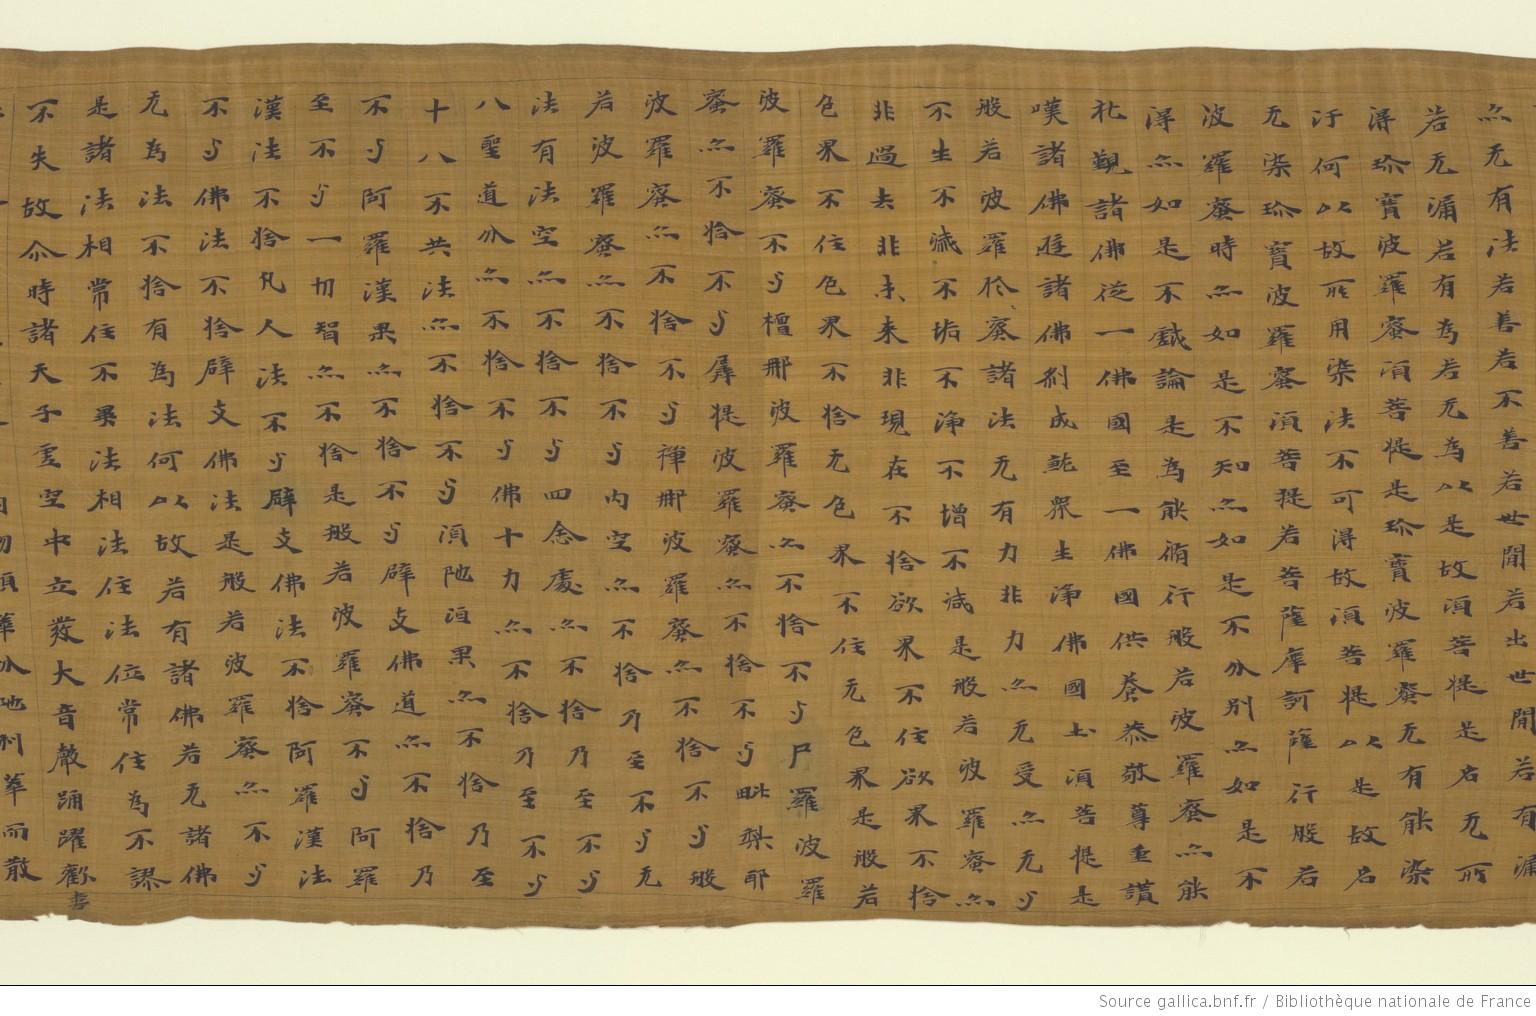 亦无有法若善若不善若世間若出世間若有漏
若无漏若有為若无為以是故須菩提是名无所
得珍寶波羅蜜須菩提是珍寶波羅蜜无有能染
汙何以故所用染法不可得故須菩提以是故名
无染珍寶波羅蜜須菩提若菩薩摩訶薩行般若
波羅蜜時亦如是不知亦如是不分別亦如是不
得亦如是不戲論是為能脩行般若波羅蜜亦能
礼覲諸佛從一佛國至一佛國供養恭敬尊重讚
嘆諸佛遊諸佛刹成就眾生淨佛國土須菩提是
般若波羅於蜜諸法无有力非力亦无受亦无与
不生不滅不垢不淨不增不減是般若波羅蜜亦
非過去非未来非現在不捨欲界不住欲界不捨
色界不住色界不捨无色界不住无色界是般若
波羅蜜不与檀那波羅蜜亦不捨不与尸羅波羅
蜜亦不捨不与羼提波羅蜜亦不捨不与毗梨耶
波羅蜜亦不捨不与禪那波羅蜜亦不捨不与般
若波羅蜜亦不捨不与内空亦不捨乃至不与无
法有法空亦不捨不与四念處亦不捨乃至不与
八聖道分亦不捨不与佛十力亦不捨乃至不与
十八不共法亦不捨不与須陁洹果亦不捨乃至
不与阿羅漢果亦不捨不与辟支佛道亦不捨乃
至不与一切智亦不捨是般若波羅蜜不与阿羅
漢法不捨凡人法不与辟支佛法不捨阿羅漢法
不与佛法不捨辟支佛法是般若波羅蜜亦不与
无為法不捨有為法何以故若有諸佛若无諸佛
是諸法相常住不異法相法住法位常住為不謬
不失故尒時諸天子虚空中立發大音聲踊躍歡喜
而散
Source gallica.bnf.fr / Bibliothèque nationale de France